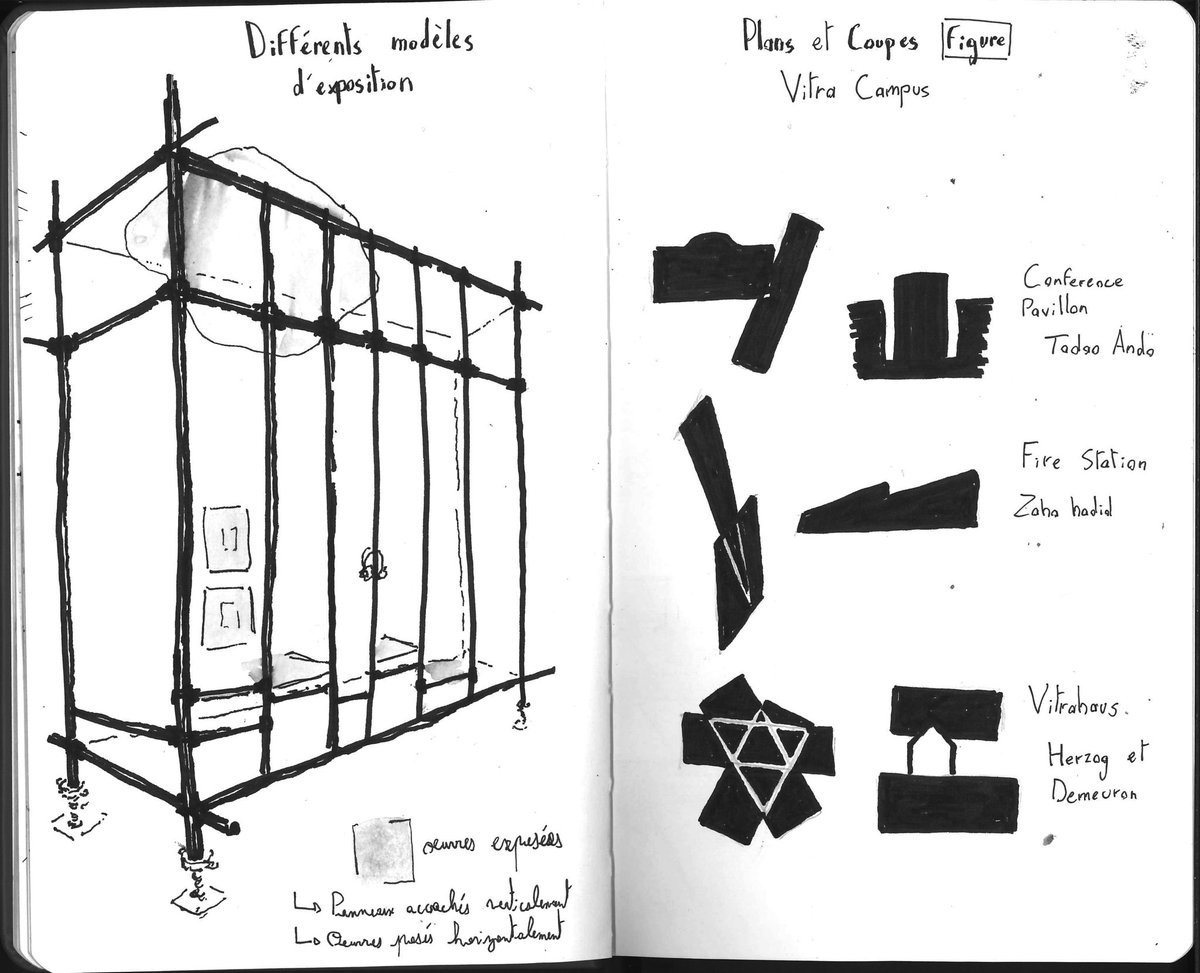 Différents modèles
d'exposition
oeuvres exposées
↳ Panneaux accrochés verticalement
↳ Oeuvres posés horizontalement
Plans et Coupes Figure
Vitra Campus
Conference
Pavillon
Tadao Ando
Fire Station
Zaha hadid
Vitrahaus.
Herzog et
Demeuron